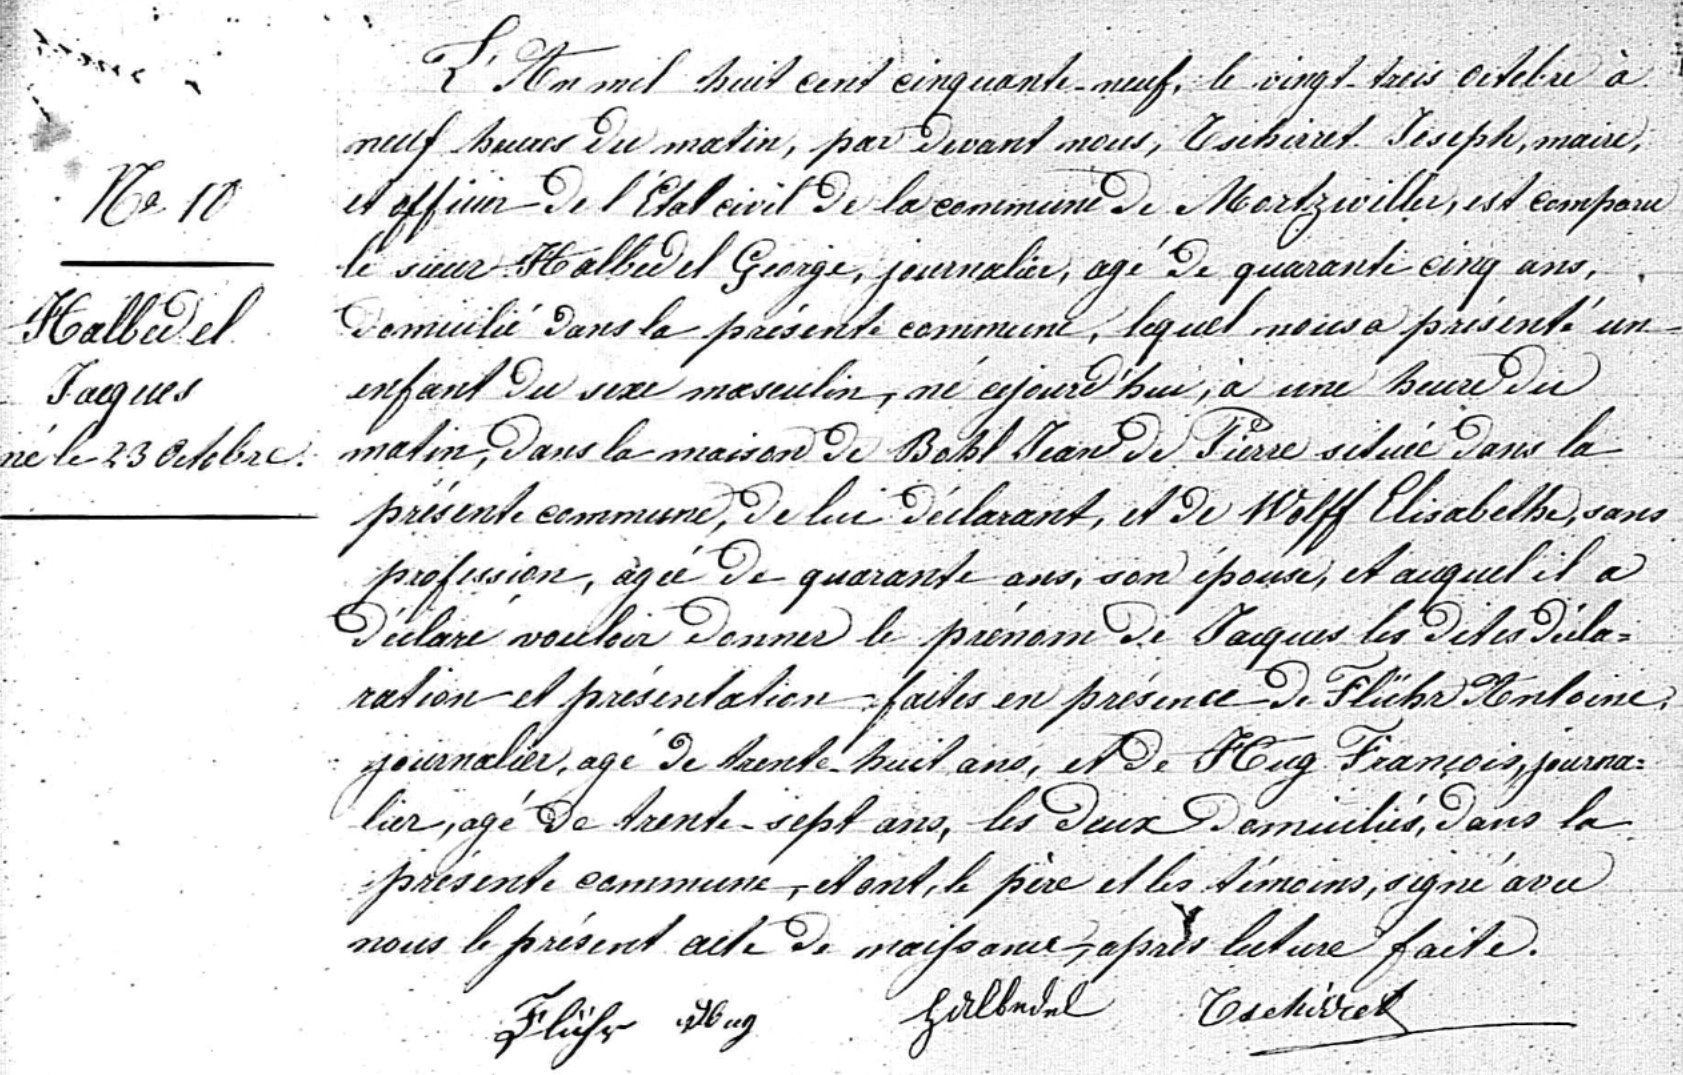 No 10
Halbedel
Jacques
né le 23 Octobre.
L'An mil huit cent cinquante-neuf, le vingt-trois Octobre à
neuf heures du matin, par devant nous, Tschirret Joseph, maire,
et officier de l'État civil de la commune de Mortzwiller, est comparu
le sieur Halbedel George, journalier, agé de quarante cinq ans,
domicilié dans la présente commune, lequel nous a présenté un
enfant du sexe masculin, né cejourd'hui, à une heure du
matin, dans la maison de Bohl Jean de Pierre située dans la
présente commune, de lui déclarant, et de Wolff Elisabethe, sans
profession, âgée de quarante ans, son épouse, et auquel il a
déclaré vouloir donner le prénom de Jacques les dites décla=
ration et présentation faites en présence de Flühr Antoine,
journalier, agé de trente-huit ans, et de Hug François, journa=
lier, agé de trente-sept ans, les deux domiciliés, dans la
présente commune, et ont, le père et les témoins, signé avec
nous le présent acte de naissance, après lecture faite.
Flühr Hug Halbedel Tschirret